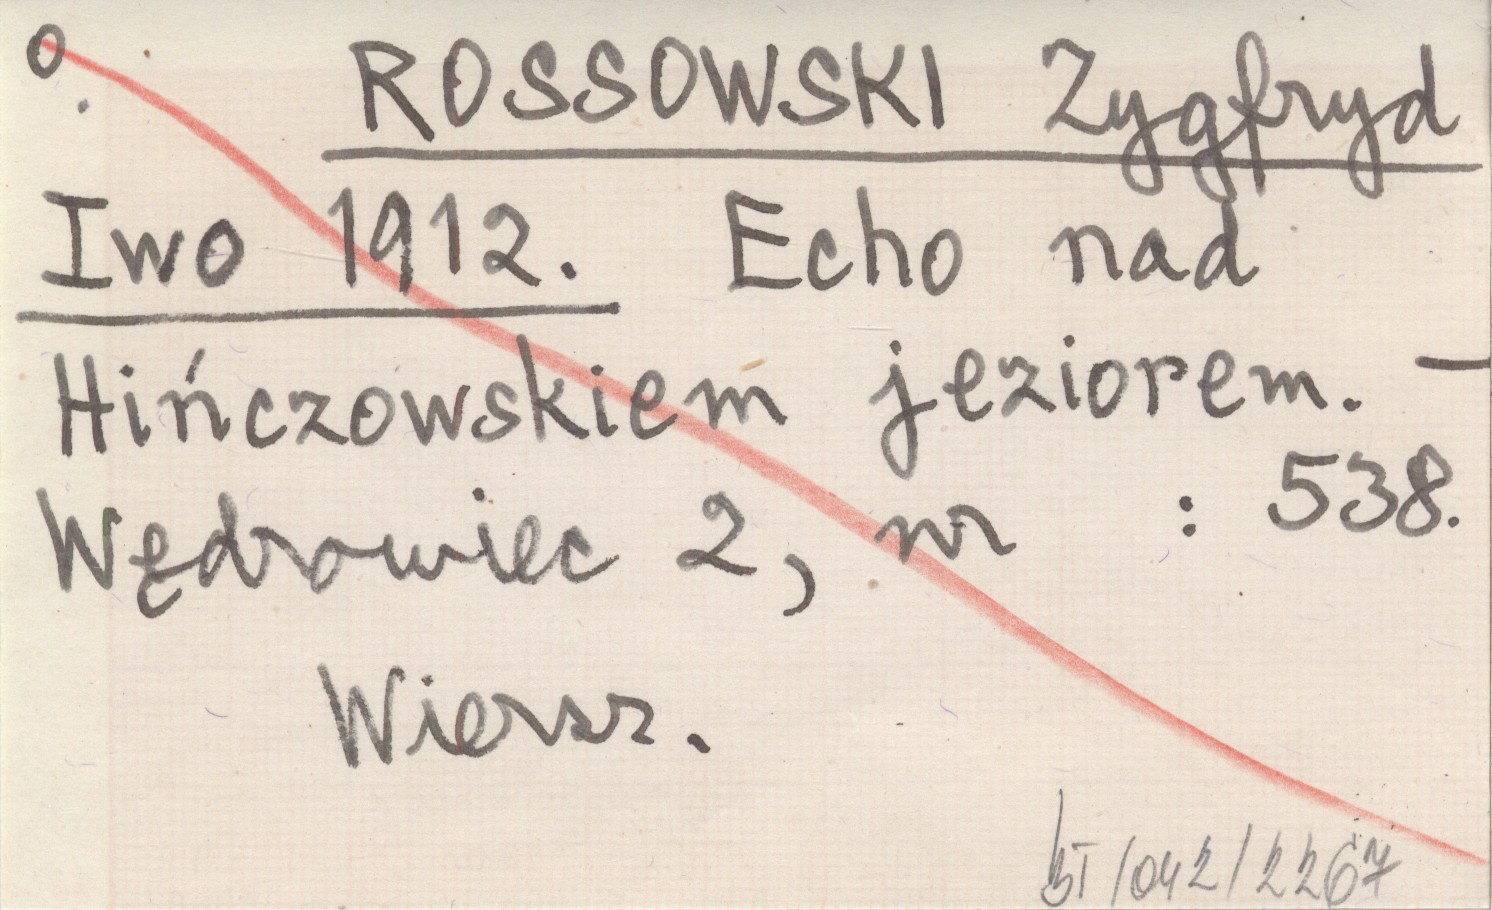 o ROSSOWSKI Zygfryd
Iwo 1912. Echo nad
Hińczowskiem jeziorem. –
Wędrowiec 2, nr : 538.
Wiersz.
BT/042/2267